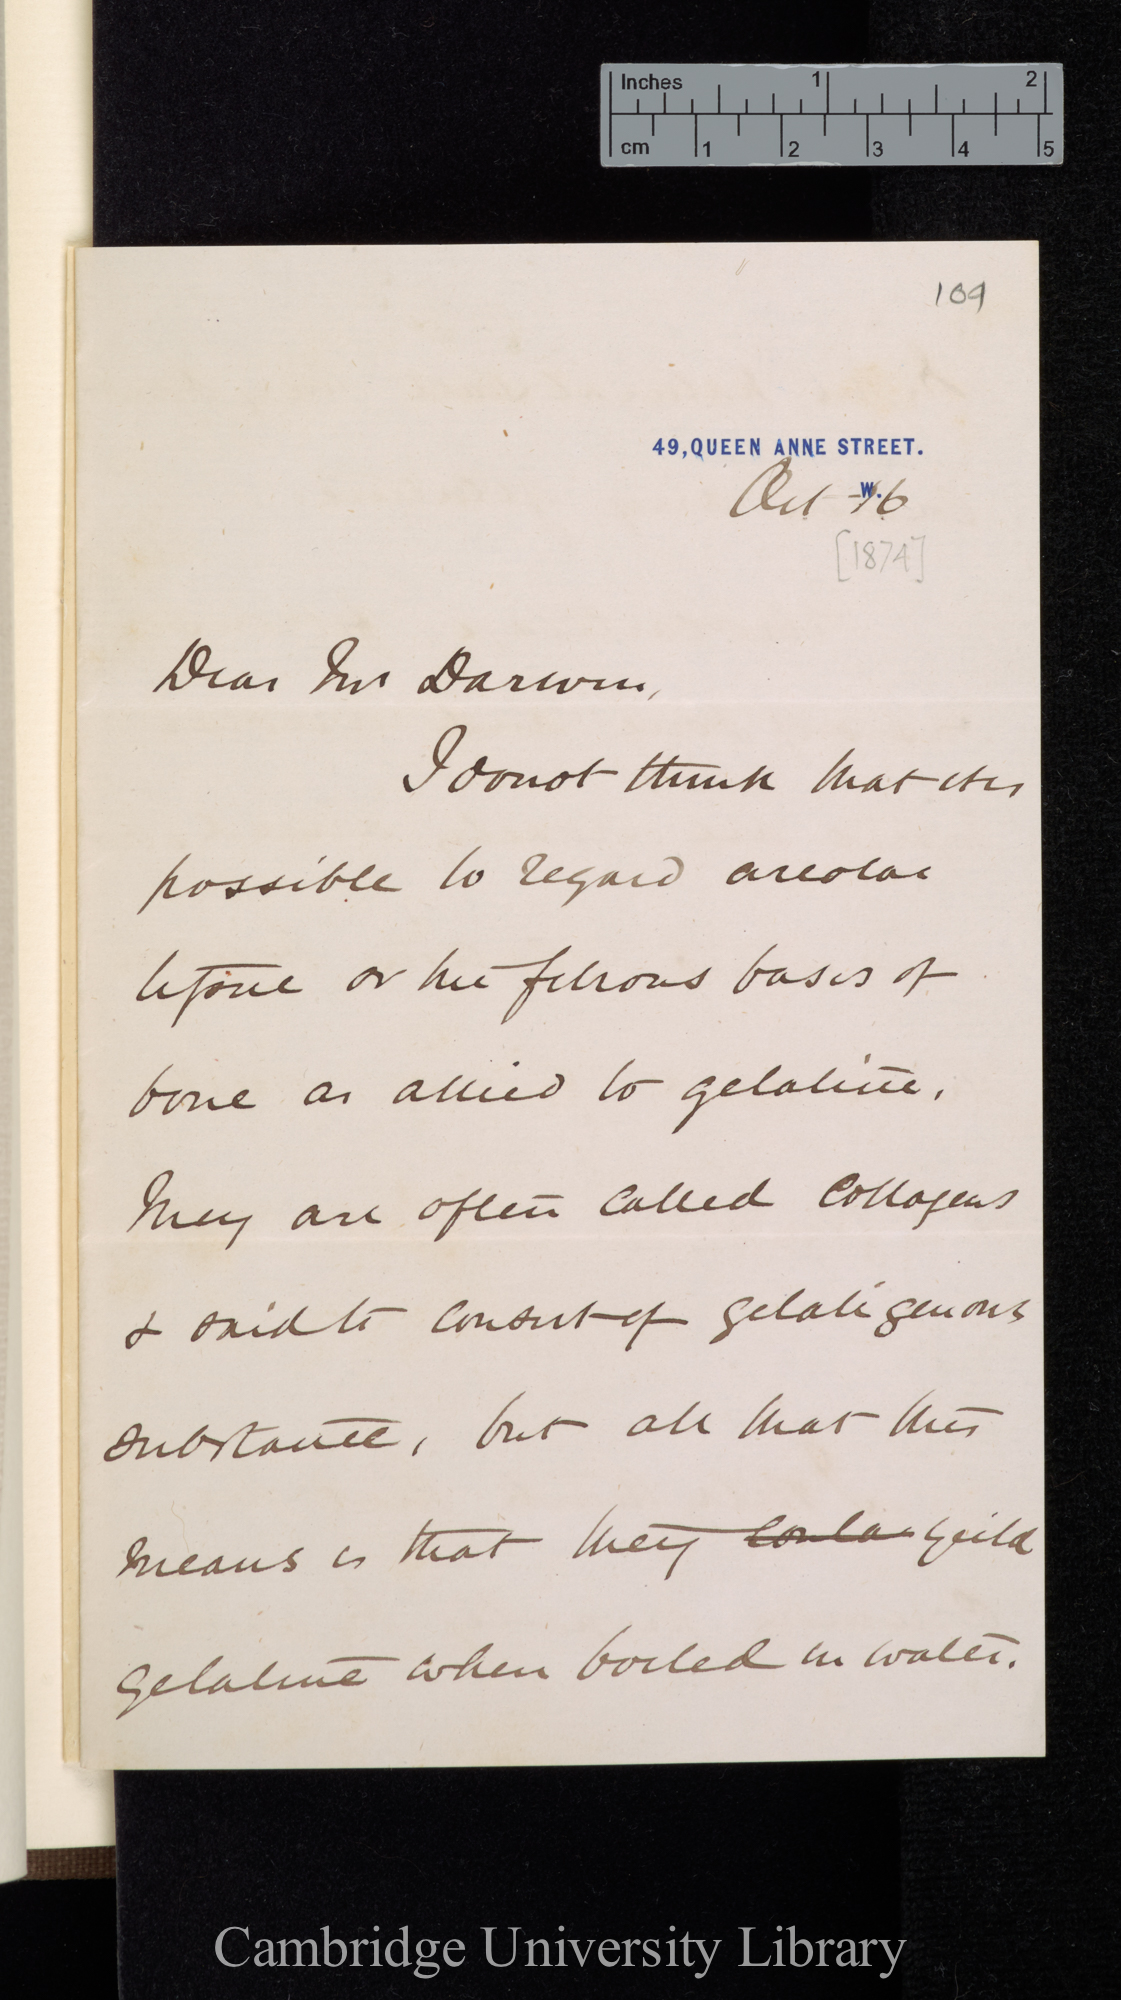 Inches 1 2
cm 1 2 3 4 5
109
49, QUEEN ANNE STREET.
W.
Oct 16
[1874]
Dear Mr Darwin,
I do not think that it is
possible to regard areolar
tissue or the fibrous basis of
bone as allied to gelatine.
They are often called Collagens
& said to consist of gelatigenous
substance, but all that this
means is that they yeild
gelatine when boiled in water.
Cambridge University Library